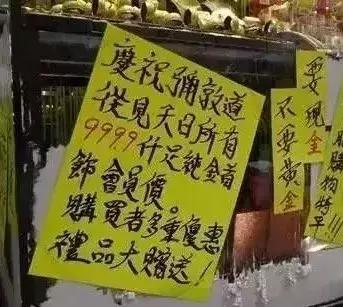 慶祝彌敦道
從見天日所有
9999仟足純金首
飾會員價。
購買者多重優惠
禮品大贈送！
要現金
不要黃金
購物特平!!!